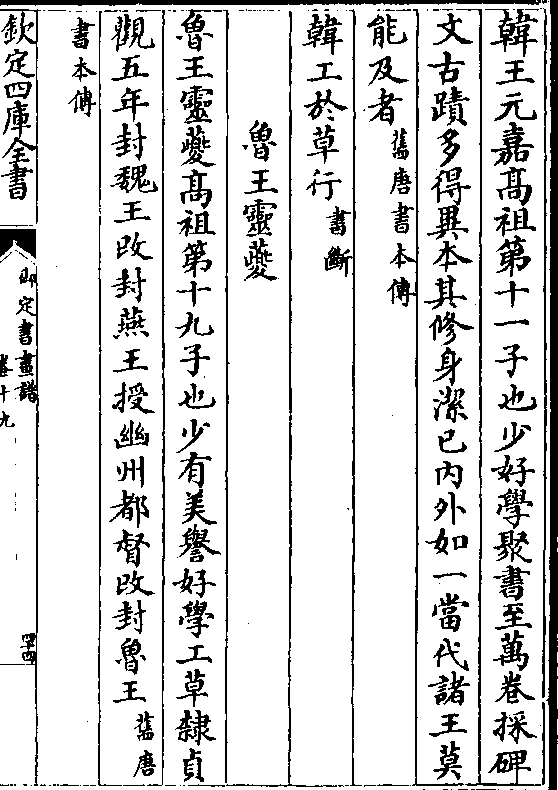 韓王元嘉髙祖第十一子也少好學聚書至萬卷採碑
文古蹟多得異本其修身潔已内外如一當代諸王莫
能及者舊唐書本傳
韓工於草行書斷
魯王靈夔
魯王靈夔髙祖第十九子也少有美譽好學工草隸貞
觀五年封魏王改封燕王授幽州都督改封魯王舊唐
書本傳
欽定四庫全書
御定書畫譜
卷十九
四十四